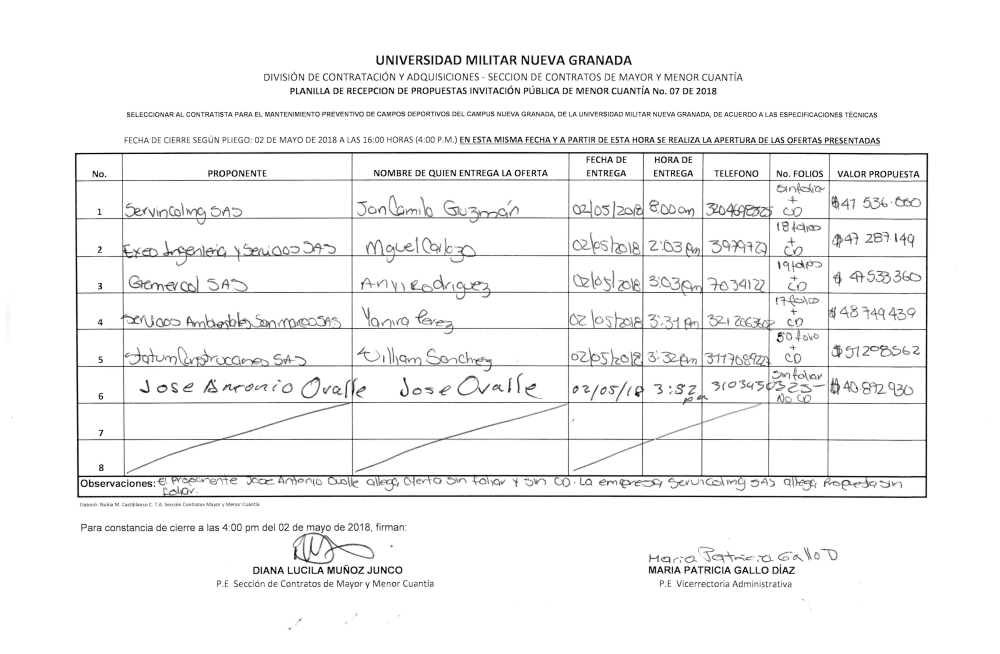 UNIVERSIDAD MILITAR NUEVA GRANADA
DIVISIÓN DE CONTRATACIÓN Y ADQUISICIONES - SECCION DE CONTRATOS DE MAYOR Y MENOR CUANTÍA
PLANILLA DE RECEPCION DE PROPUESTAS INVITACIÓN PÚBLICA DE MENOR CUANTÍA No. 07 DE 2018
SELECCIONAR AL CONTRATISTA PARA EL MANTENIMIENTO PREVENTIVO DE CAMPOS DEPORTIVOS DEL CAMPUS NUEVA GRANADA, DE LA UNIVERSIDAD MILITAR NUEVA GRANADA, DE ACUERDO A LAS ESPECIFICACIONES TÉCNICAS
FECHA DE CIERRE SEGÚN PLIEGO: 02 DE MAYO DE 2018 A LAS 16:00 HORAS (4:00 P.M.) EN ESTA MISMA FECHA Y A PARTIR DE ESTA HORA SE REALIZA LA APERTURA DE LAS OFERTAS PRESENTADAS
No. PROPONENTE NOMBRE DE QUIEN ENTREGA LA OFERTA FECHA DE ENTREGA HORA DE ENTREGA TELEFONO No. FOLIOS VALOR PROPUESTA
1 Servincoling SAS Jan Camilo Guzmán 02/05/2018 8:00am sin foliar + CD $47 536.000
2 Exeo Ingenieria y Servicios SAS Miguel 02/05/2018 2:03 pm 3979727 18 folios + CD $47 287.149
3 Gremercol SAS Anyi Rodriguez 02/05/2018 3:03pm 7034122 19 folios + CD $ 47533.360
4 Servicios Ambientales San marcos SAS Yanira Perez 02/05/2018 3:31 pm 17 folios + CD $48 749 439
5 Statum Construcciones SAS William Sanchez 02/05/2018 3:32pm 50 folio + CD $51208562
6 Jose Antonio Ovalle Jose Ovalle 02/05/18 3:52 pm 3103430325 sin foliar - No CD $40.892.930
7
8
Observaciones: El Proponente Jose Antonio Ovalle allega, Oferta Sin foliar y sin CD. La empresa Servicoling SAS allega Propuesta sin
foliar.
Elaboró: Nubia M. Castiblanco C. T.A. Sección Contratos Mayor y Menor Cuantía
Para constancia de cierre a las 4:00 pm del 02 de mayo de 2018, firman:
Maria Patricia Gallo D
DIANA LUCILA MUÑOZ JUNCO MARIA PATRICIA GALLO DÍAZ
P.E Sección de Contratos de Mayor y Menor Cuantía P.E Vicerrectoria Administrativa